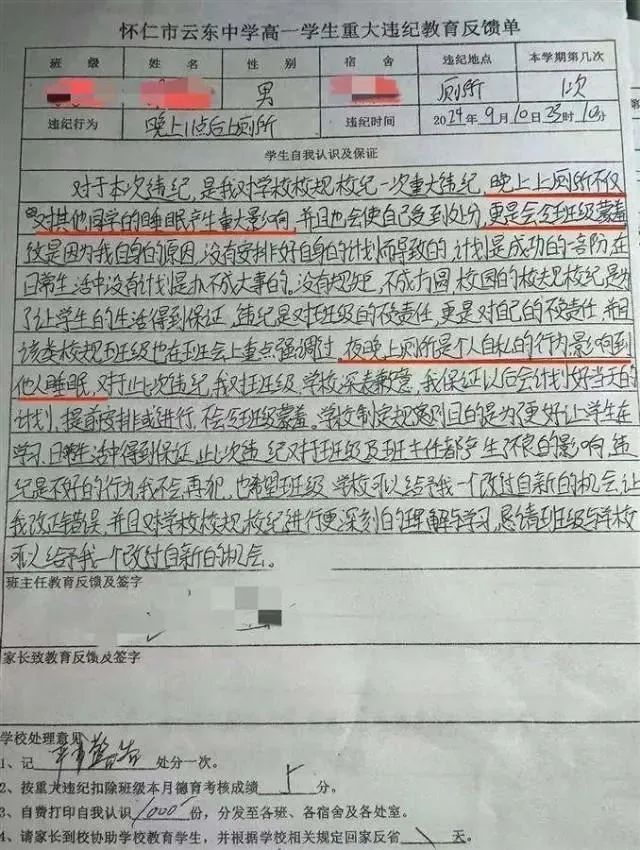 怀仁市云东中学高一学生重大违纪教育反馈单
班 级 姓 名 性 别 宿 舍 违纪地点 本学期第几次
男 厕所 1次
违纪行为 晚上11点后上厕所 违纪时间 2024年9月10日23时10分
学生自我认识及保证
对于本次违纪，是我对学校校规校纪一次重大违纪，晚上上厕所不仅
对其他同学的睡眠产生重大影响，并且也会使自己受到处分，更是会给班级蒙羞
这是因为我自身的原因，没有安排好自身的计划而导致的，计划是成功的一部份在
日常生活中没有计划是办不成大事的。没有规矩，不成方圆校园的校规校纪是为
了让学生的生活得到保证，违纪是对班级的不负责任，更是对自己的不负责任，并且
该类校规班级也在班会上重点强调过。夜晚上厕所是个人自私的行为影响到
他人睡眠，对于此次违纪，我对班级、学校深表歉意，我保证以后会计划好当天的
计划，提前安排或进行，不会给班级蒙羞。学校制定规则目的是为了更好让学生在
学习、日常生活中得到保证，此次违纪对于班级及班主任都产生了不良的影响，违
纪是不好的行为我不会再犯，也希望班级、学校可以给予我一个改过自新的机会，让
我改正错误，并且对学校校规校纪进行更深刻的理解与学习，恳请班级与学校
可以给予我一个改过自新的机会。
班主任教育反馈及签字
家长致教育反馈及签字
学校处理意见
1、记 严重警告 处分一次。
2、按重大违纪扣除班级本月德育考核成绩 5 分。
3、自费打印自我认识 1000 份，分发至各班、各宿舍及各处室。
4、请家长到校协助学校教育学生，并根据学校相关规定回家反省 \ 天。